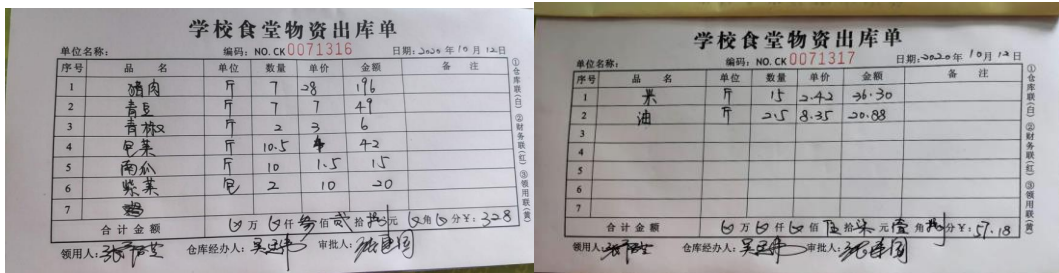 学校食堂物资出库单
单位名称： 编码：NO.CK 0071316 日期：2020年10月12日
序号 品名 单位 数量 单价 金额 备注
1 猪肉 斤 7 28 196
2 青豆 斤 7 7 49
3 青椒 斤 2 3 6
4 包菜 斤 10.5 4 42
5 南瓜 斤 10 1.5 15
6 紫菜 包 2 10 20
7
合计金额 万 仟 叁佰 贰拾 捌元 角 分 ¥：328
领用人： 仓库经办人： 审批人：
①仓库联(白) ②财务联(红) ③领用联(黄)
学校食堂物资出库单
单位名称： 编码：NO.CK 0071317 日期：2020年10月12日
序号 品名 单位 数量 单价 金额 备注
1 米 斤 15 2.42 36.30
2 油 斤 2.5 8.35 20.88
3
4
5
6
7
合计金额 万 仟 佰 伍拾 柒元 壹角 捌分 ¥：57.18
领用人： 仓库经办人： 审批人：
①仓库联(白) ②财务联(红) ③领用联(黄)